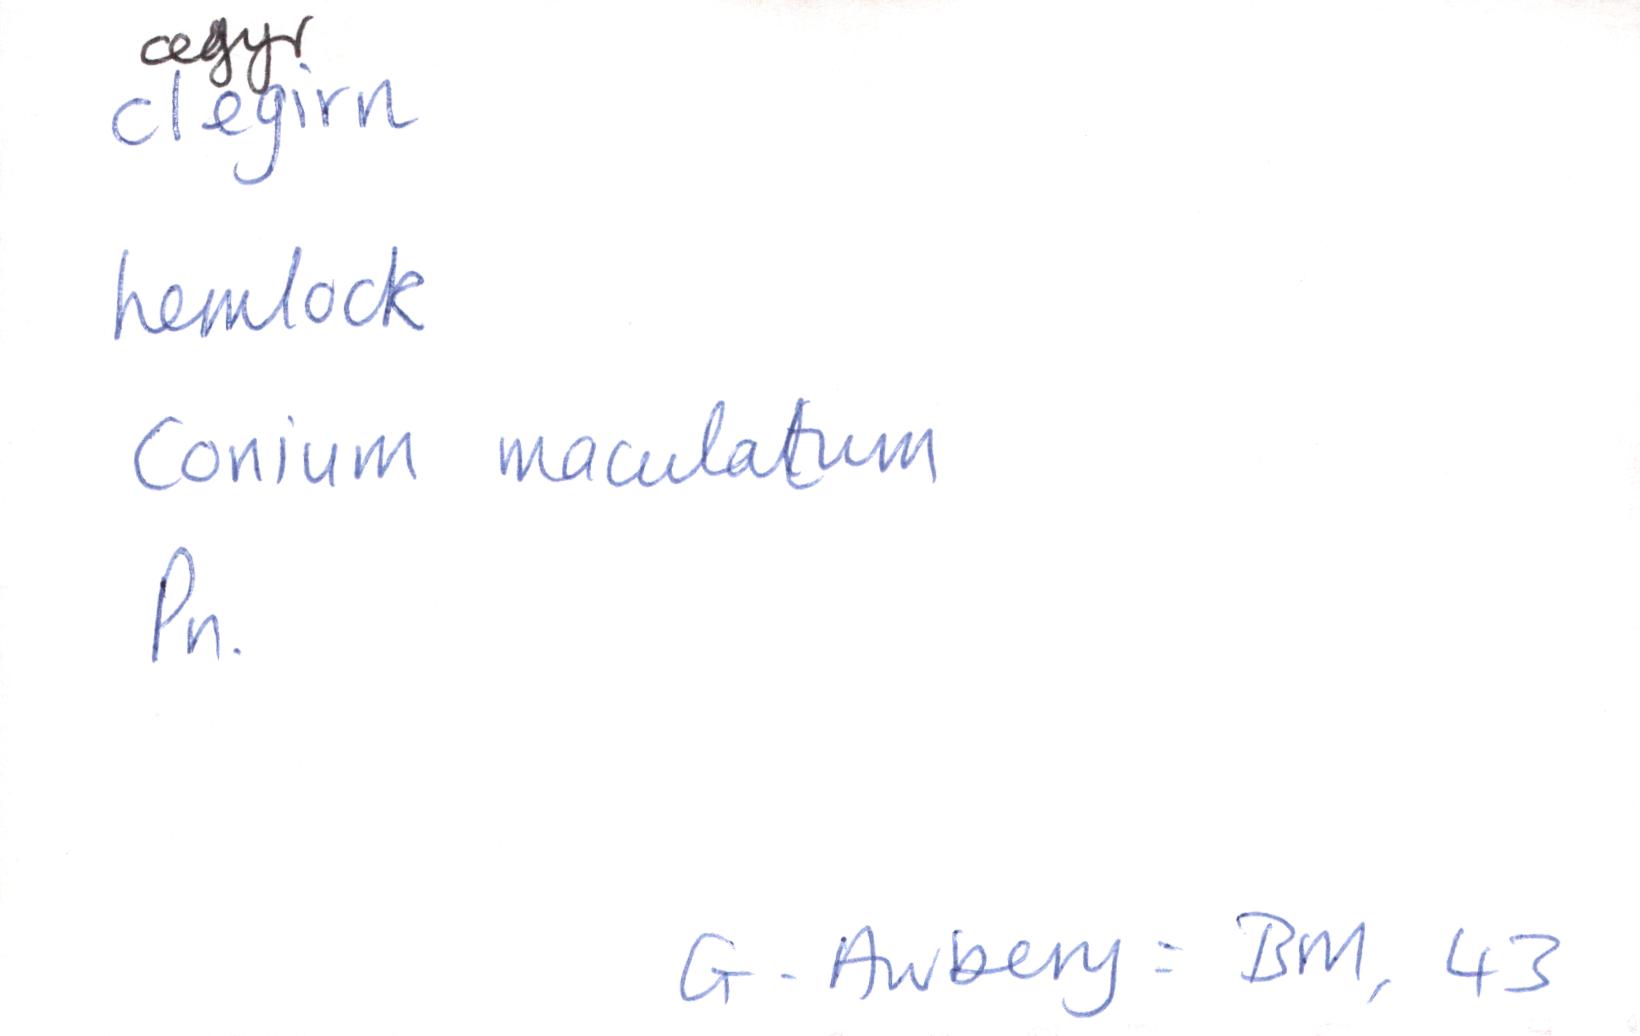 cegyr
clegirn
hemlock
Conium maculatum
Pn.
G. Awbery = BM, 43